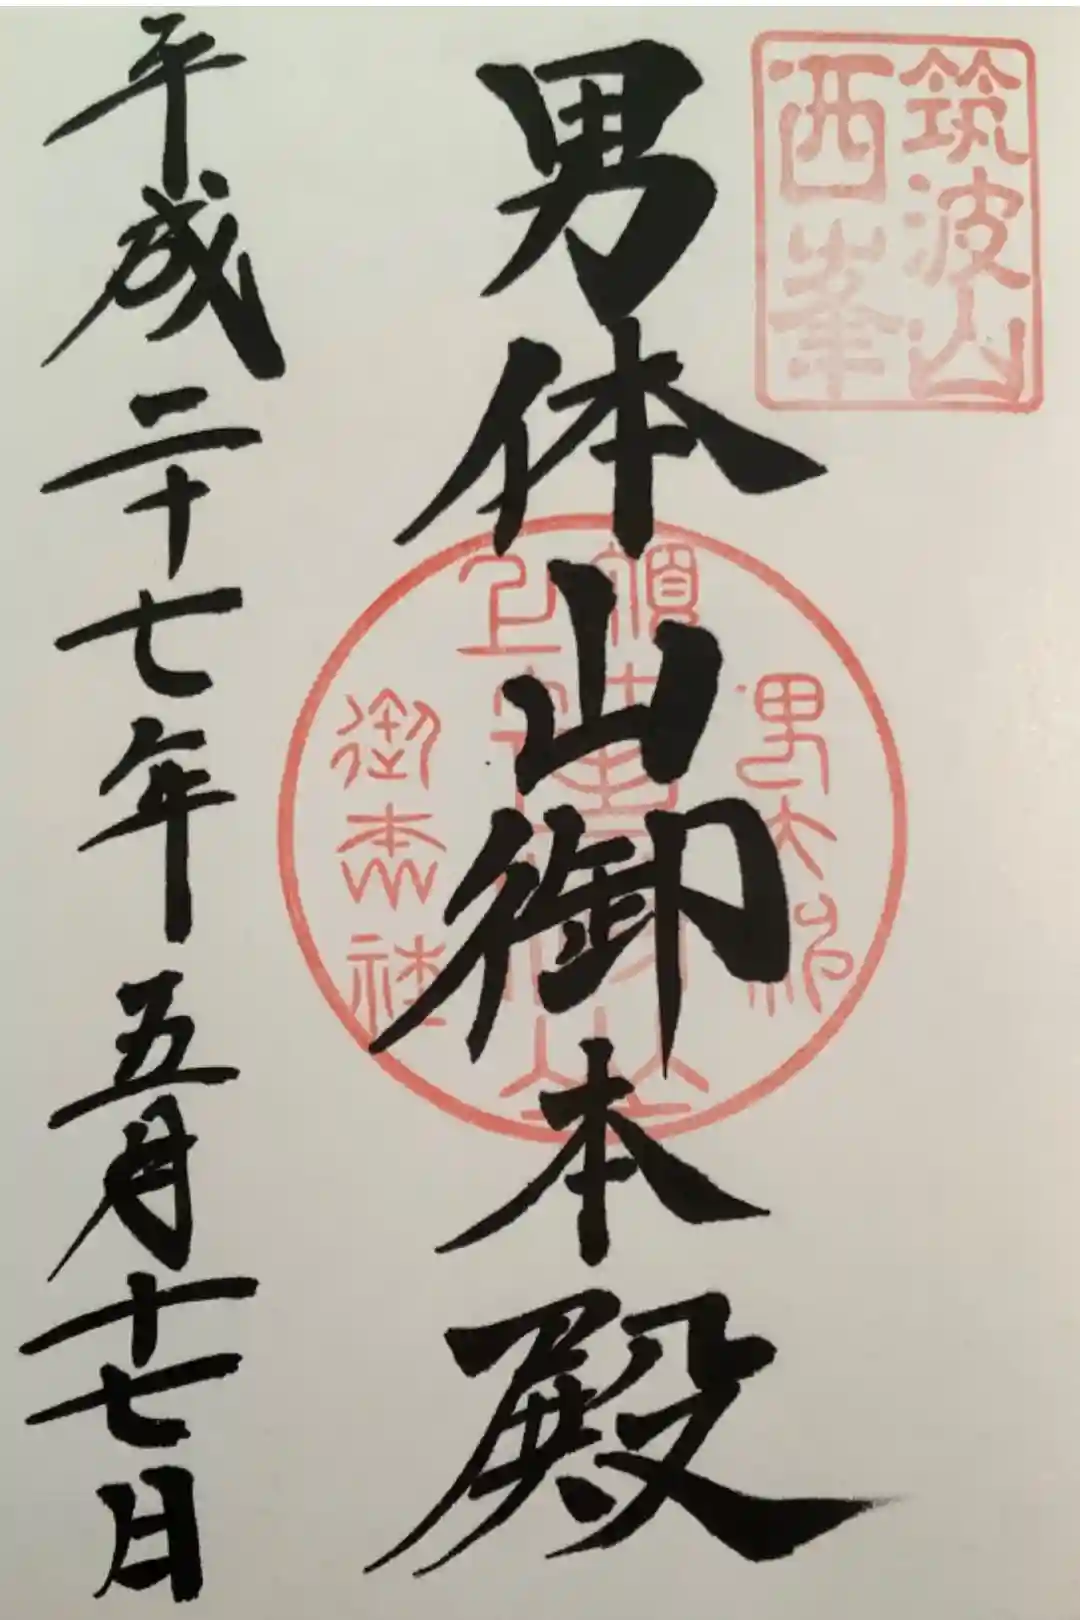 筑波山
西峯
男体山御本殿
平成二十七年五月十七日